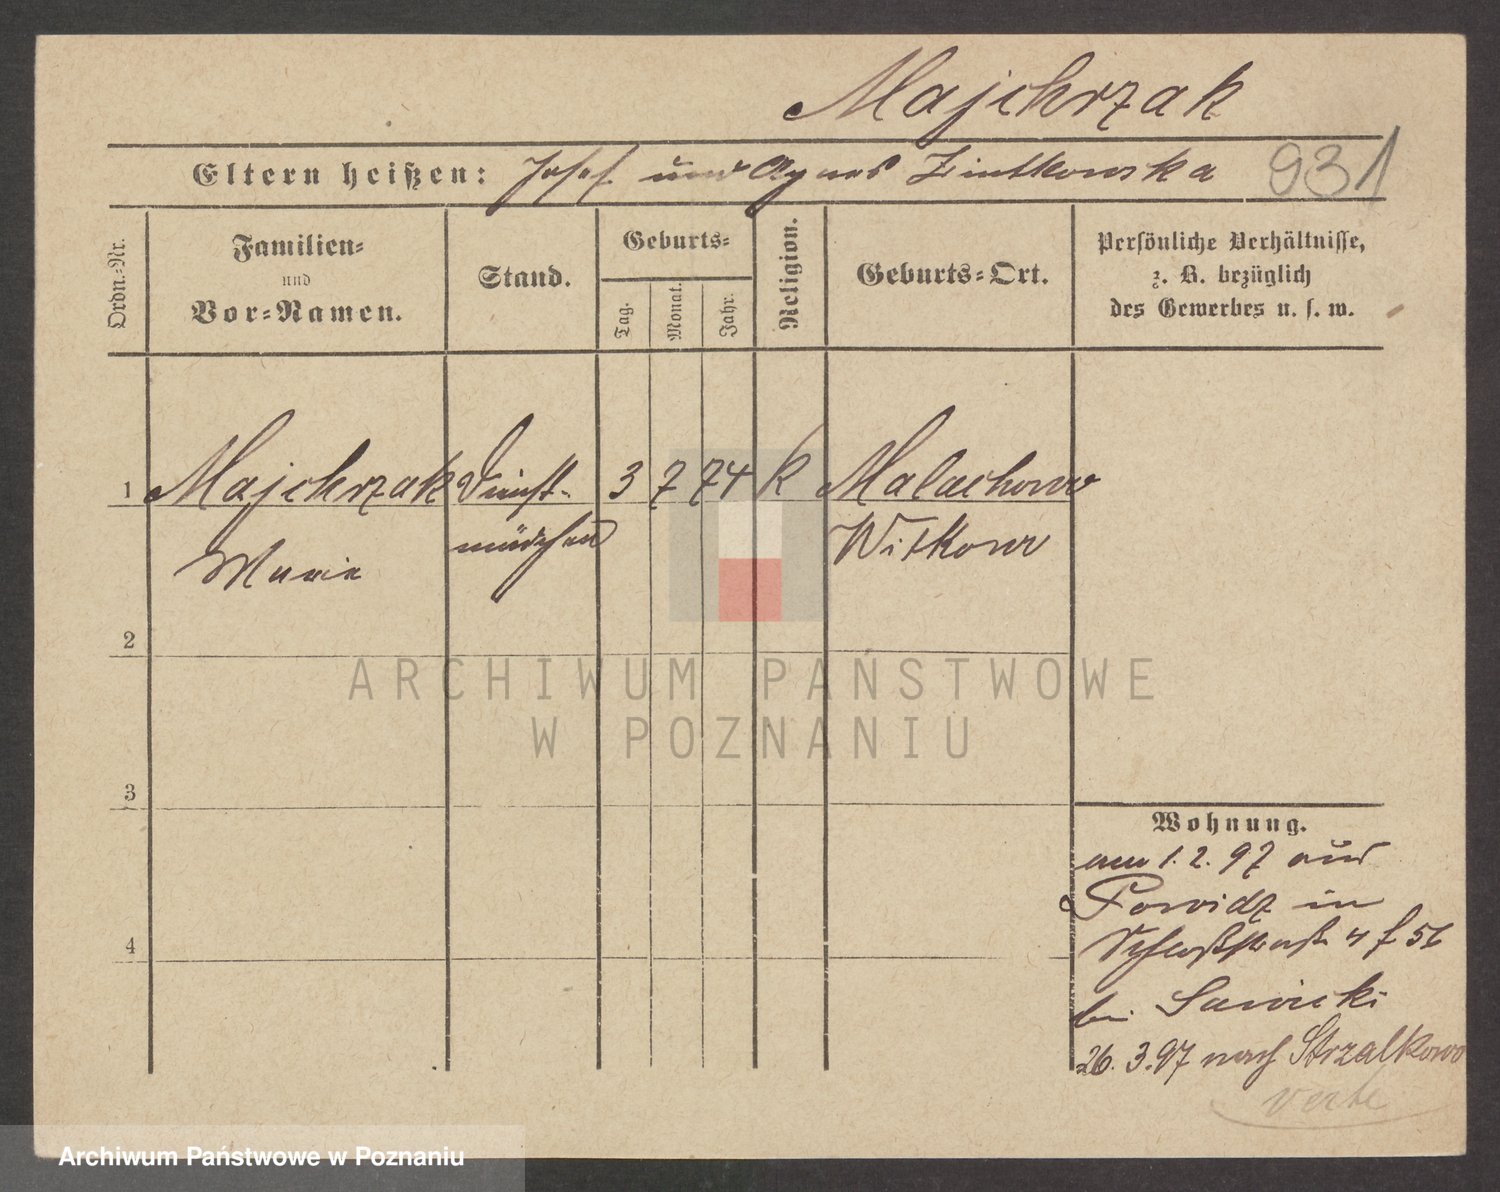 Majchrzak
Eltern heißen: Josef und Agnes Zintkowska 931
Ordn.-Nr.
Familien-
und
Vor-Namen.
Stand.
Geburts-
Tag.
Monat.
Jahr.
Religion.
Geburts-Ort.
Persönliche Verhältnisse,
z. B. bezüglich
des Gewerbes u. s. w.
1 Majchrzak Dienst- 3 7 74 k Malachowo
Marie mädchen Witkowo
2
3
4
ARCHIWUM PAŃSTWOWE
W POZNANIU
Wohnung.
am 1.2.97 aus
Powidz in
Schloßstraße 4 f 56
bei Sawicki
26.3.97 nach Strzalkowo
verte
Archiwum Państwowe w Poznaniu